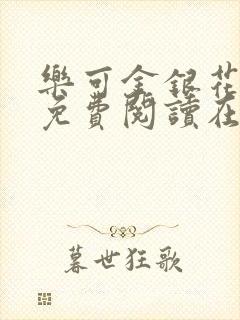 樂可金銀花
免費閱讀在
暮世狂歌